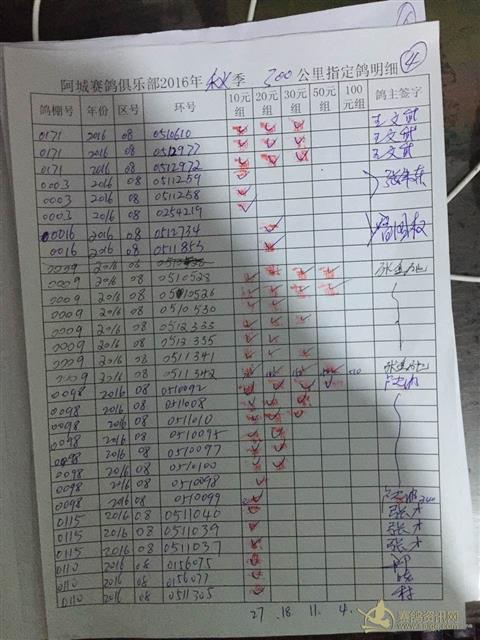 ④
阿城赛鸽俱乐部2016年 秋 季 300 公里指定鸽明细
鸽棚号 年份 区号 环号 10元组 20元组 30元组 50元组 100元组 鸽主签字
0171 2016 08 0510610 ✓ ✓ ✓ 王文
0171 2016 08 0512977 ✓ ✓ ✓ 王文
0171 2016 08 0512972 ✓ ✓ ✓ 王文
0003 2016 08 0511259 ✓
0003 2016 08 0511258 ✓
0003 2016 08 0254219 ✓
0016 2016 08 0512734 ✓
0016 2016 08 0511853 ✓
0009 2016 08
0009 2016 08 0510528 ✓ ✓ ✓ ✓
0009 2016 08 0510526 ✓ ✓ ✓ ✓
0009 2016 08 0510530 ✓ ✓ ✓
0009 2016 08 0512333 ✓ ✓ ✓
0009 2016 08 0512335 ✓ ✓ ✓
0009 2016 08 0511341 ✓ ✓ ✓
0009 2016 08 0511342 ✓
0098 2016 08 0510092 ✓ ✓ ✓ ✓
0098 2016 08 0511008 ✓ ✓ ✓
0098 2016 08 0511010 ✓ ✓
0098 2016 08 0510095 ✓ ✓
0098 2016 08 0510097 ✓ ✓
0098 2016 08 0510100 ✓ ✓
0098 2016 08 0510098 ✓
0098 2016 08 0510099 ✓
0115 2016 08 0511040 ✓ 张才
0115 2016 08 0511039 ✓ 张才
0115 2016 08 0511037 ✓ 张才
0110 2016 08 0156075 ✓
0110 2016 08 0156077 ✓
0110 2016 08 0511305 ✓
27 18 11 4
赛鸽资讯网